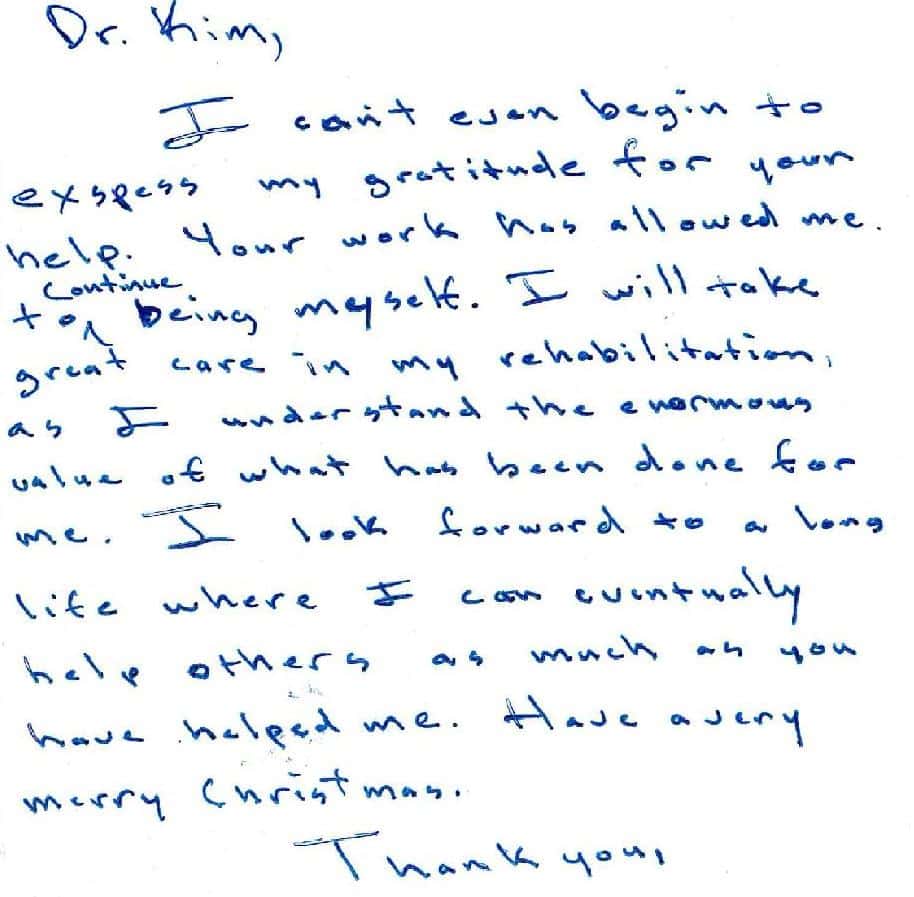 Dr. Kim,
I can't even begin to
exspess my gratitude for your
help. Your work has allowed me.
continue
to being meyself. I will take
great care in my rehabilitation,
as I understand the enormous
value of what has been done for
me. I look forward to a long
life where I can eventually
help others as much as you
have helped me. Have a very
merry Christmas.
Thank you,